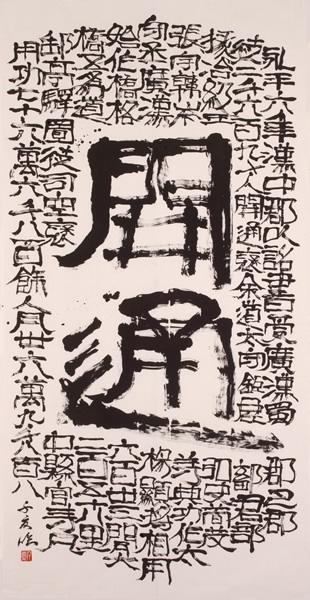 開通
永平六年漢中郡以詔書受廣漢蜀郡巴郡
徒二千六百九十人開通褒余道太守鉅鹿鄐君部
掾治級王
張宇韓岑第典功作太
守丞廣漢楊顯將相用
始作橋格六百卅三間大
橋五為道二百五十八里
郵亭驛置徒司空褒中縣官寺
用功七十六萬六千八百餘人瓦卅六萬九千八百八